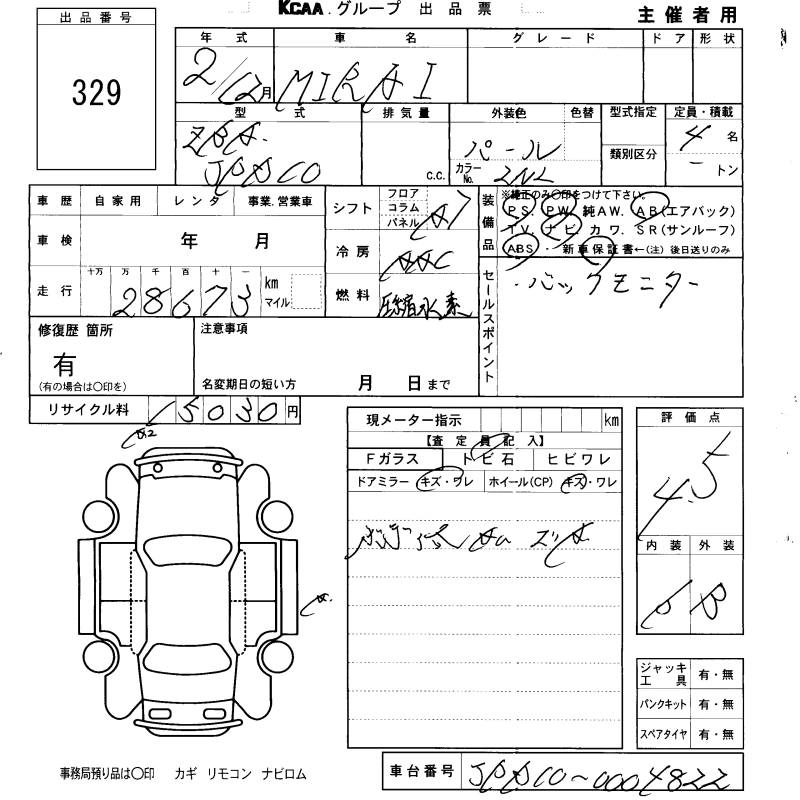 KCAA.グループ 出品票
主催者用
出品番号
329
年式 車名 グレード ドア 形状
2/12月 MIRAI
型式 排気量 外装色 色替 型式指定 定員・積載
ZBA- JPD C.C. パール カラーNo. 類別区分 4名
トン
車歴 自家用 レンタ 事業.営業車
シフト フロア コラム パネル A7
装備品 ※純正のみ○印をつけて下さい。
PS. PW. 純AW. AB(エアバック)
TV. ナビ カワ. SR(サンルーフ)
ABS・新車保証書←(注) 後日送りのみ
車検 年 月
冷房 AAC
走行 十万 万 千 百 十 一
28673 km マイル
燃料 圧縮水素
セールスポイント
・バックモニター
修復歴 箇所
有
(有の場合は○印を)
注意事項
名変期日の短い方 月 日まで
リサイクル料 15030円
現メーター指示 km
【査定員記入】
Fガラス トビ石 ヒビワレ
ドアミラー キズ・ワレ ホイール(CP) キズ・ワレ
評価点
4.5
内装 外装
B B
A2
A.
ジャッキ工具 有・無
パンクキット 有・無
スペアタイヤ 有・無
事務局預り品は○印 カギ リモコン ナビロム
車台番号 JPD10-0004822